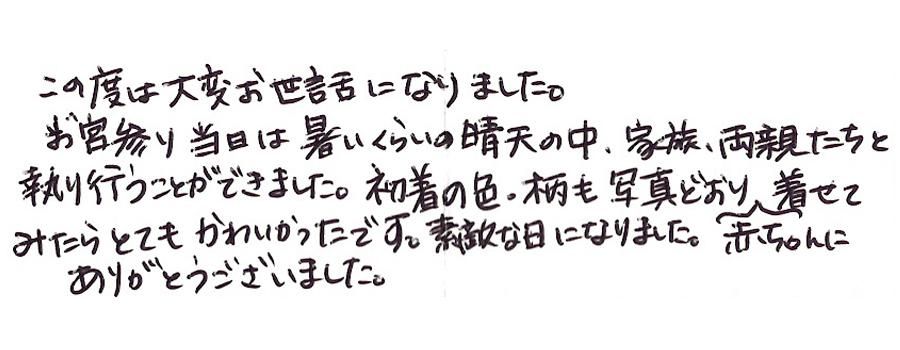 この度は大変お世話になりました。
お宮参り当日は暑いくらいの晴天の中、家族、両親たちと
執り行うことができました。初着の色・柄も写真どおり、着せて
みたらとてもかわいかったです。素敵な日になりました。赤ちゃんに
ありがとうございました。